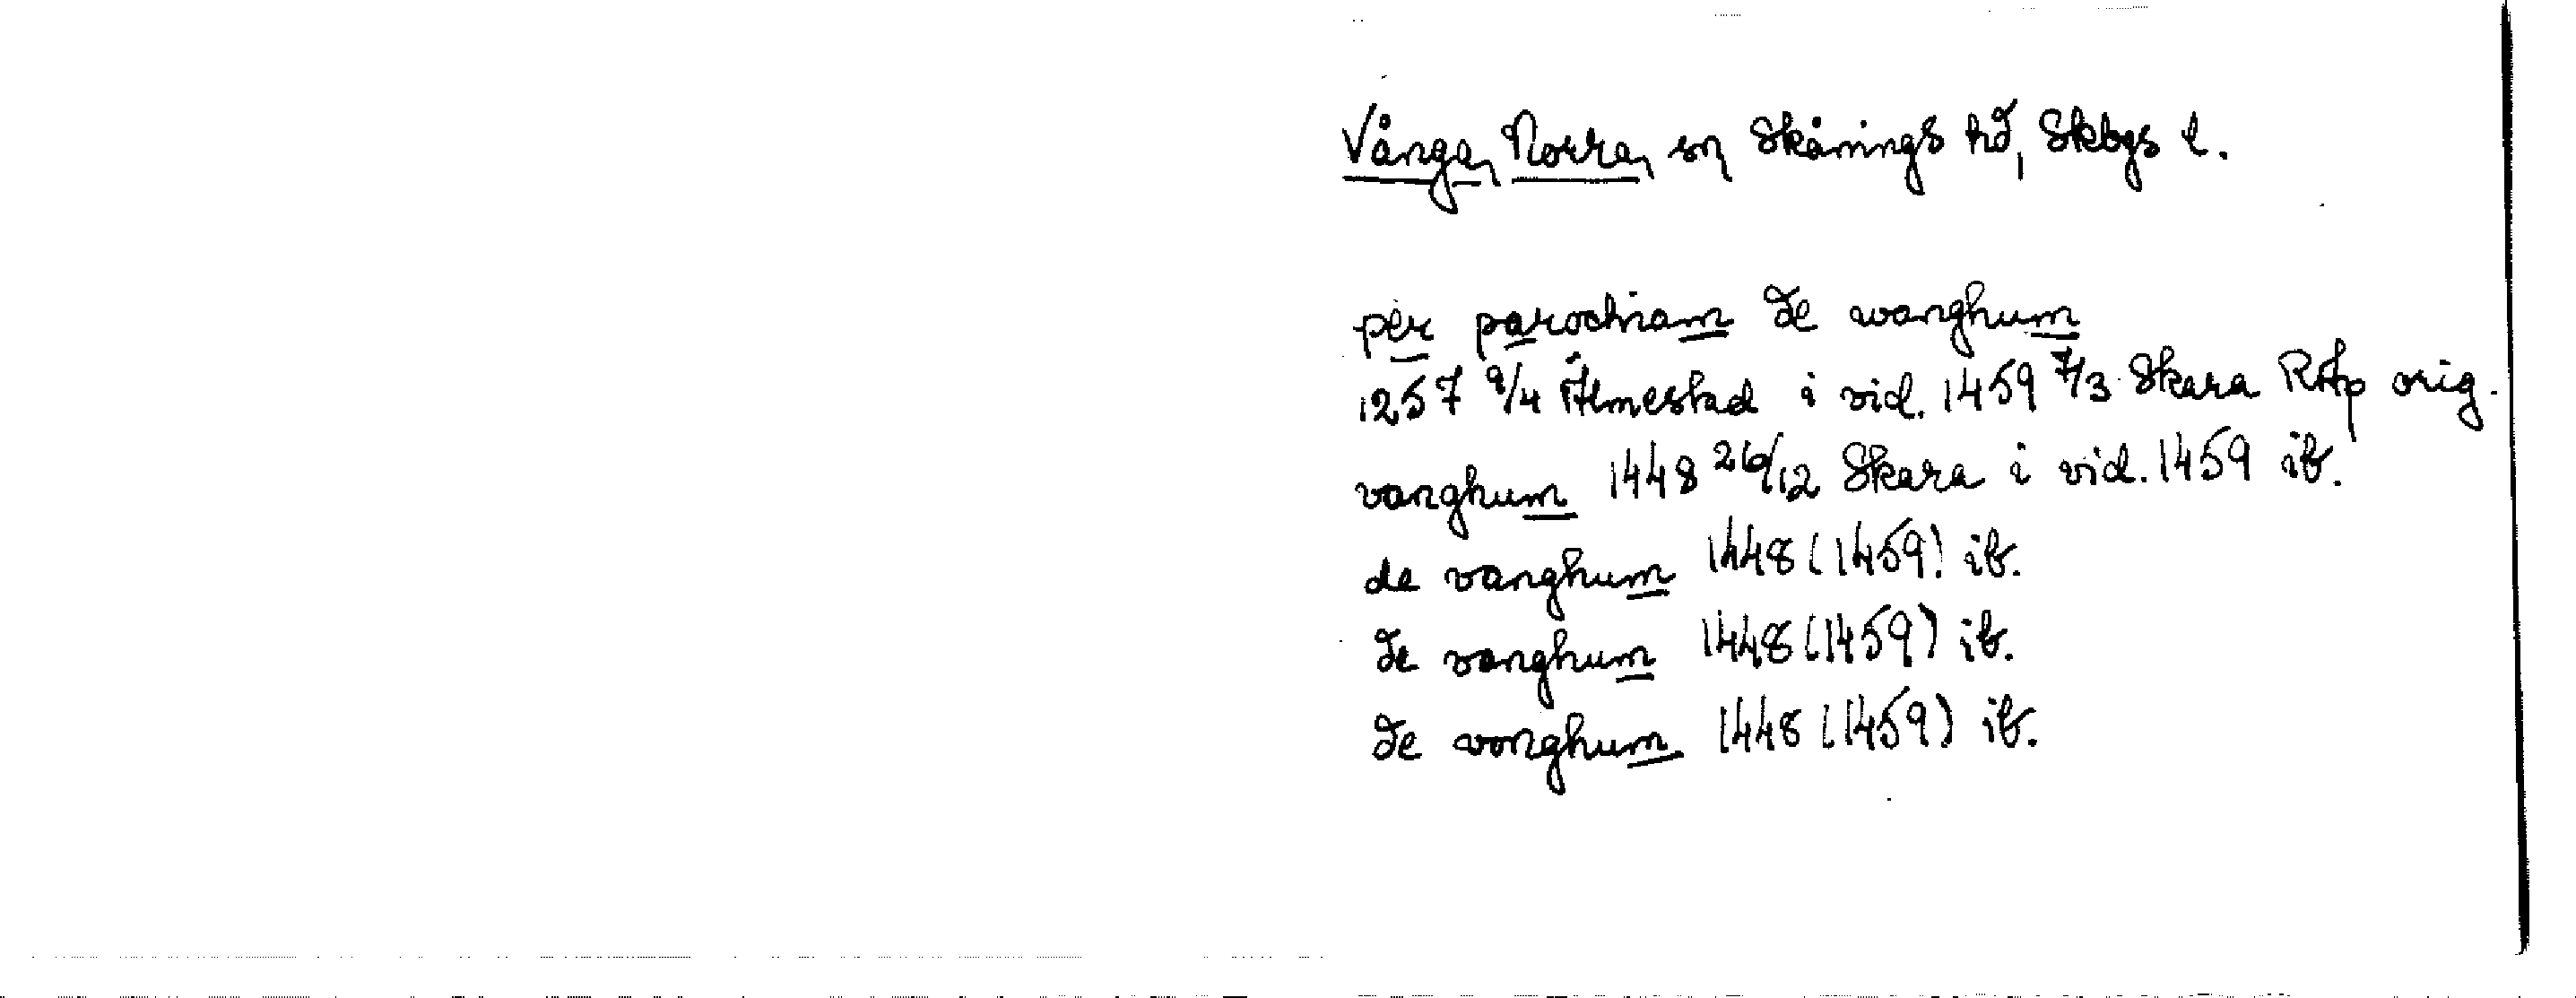 Vånga, Norra, sn Skånings hd, Skbgs l.
per parochiam de wanghum
1257 9/4 Älmestad i vid. 1459 7/3 Skara RAp orig.
vanghum 1448 26/12 Skara i vid. 1459 ib.
de vanghum 1448 (1459) ib.
de vanghum 1448 (1459) ib.
de vonghum 1448 (1459) ib.